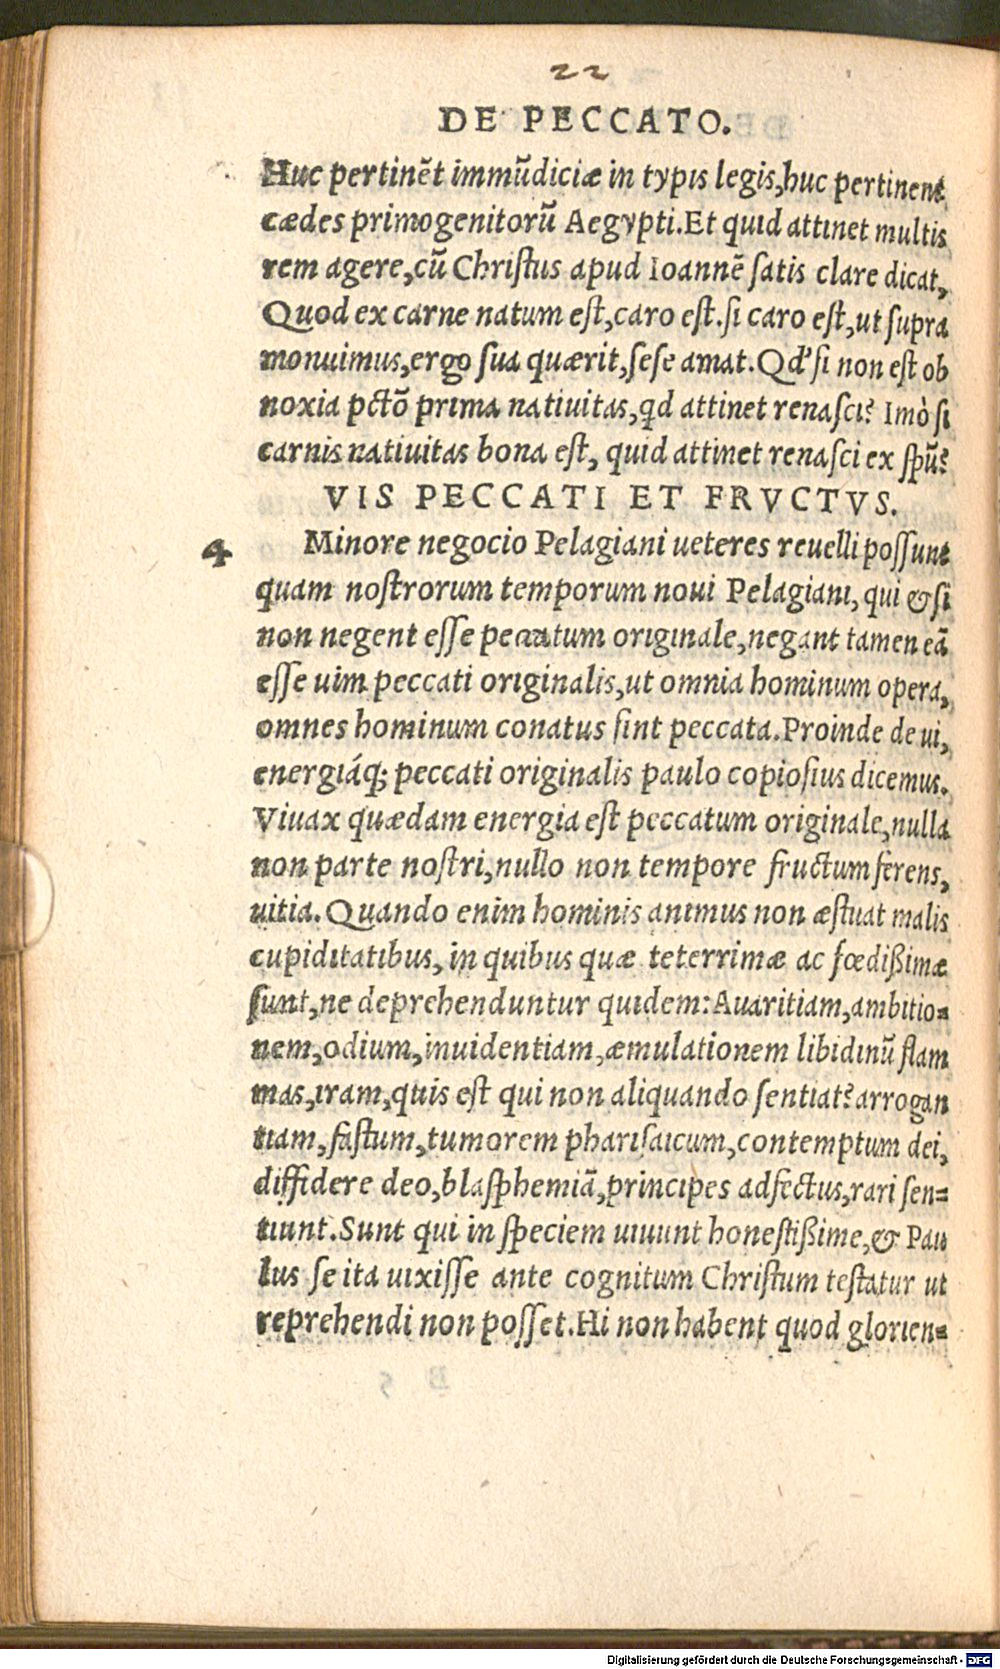 22
DE PECCATO.
Huc pertinēt immūdiciæ in typis legis,huc pertinent
cædes primogenitorū Aegypti.Et quid attinet multis
rem agere,cū Christus apud Ioannē satis clare dicat,
Quod ex carne natum est,caro est.si caro est,ut supra
monuimus,ergo sua quærit,sese amat.Qd' si non est ob
noxia pctō prima natiuitas,qd attinet renasci? Imò si
carnis natiuitas bona est, quid attinet renasci ex spū?
VIS PECCATI ET FRVCTVS.
4 Minore negocio Pelagiani ueteres reuelli possunt
quam nostrorum temporum noui Pelagiani, qui & si
non negent esse peccatum originale,negant tamen eā
esse uim peccati originalis,ut omnia hominum opera,
omnes hominum conatus sint peccata.Proinde de ui,
energiáq; peccati originalis paulo copiosius dicemus.
Viuax quædam energia est peccatum originale,nulla
non parte nostri,nullo non tempore fructum ferens,
uitia.Quando enim hominis animus non æstuat malis
cupiditatibus, in quibus quæ teterrimæ ac fœdißimæ
sunt,ne deprehenduntur quidem:Auaritiam,ambitio=
nem,odium,inuidentiam,æmulationem libidinū flam
mas,iram,quis est qui non aliquando sentiat?arrogan
tiam,fastum,tumorem pharisaicum,contemptum dei,
diffidere deo,blasphemiā,principes adfectus,rari sen=
tiunt.Sunt qui in speciem uiuunt honestißime,& Pau
lus se ita uixisse ante cognitum Christum testatur ut
reprehendi non posset.Hi non habent quod glorien=
Digitalisierung gefördert durch die Deutsche Forschungsgemeinschaft - DFG